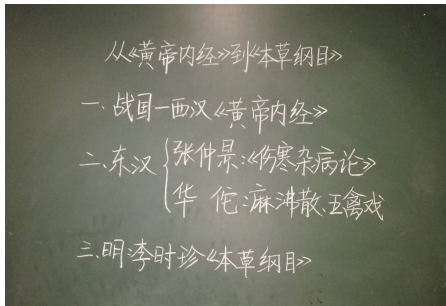 从《黄帝内经》到《本草纲目》
一.战国一西汉《黄帝内经》
二.东汉{张仲景:《伤寒杂病论》
华 佗:麻沸散、五禽戏
三.明:李时珍《本草纲目》